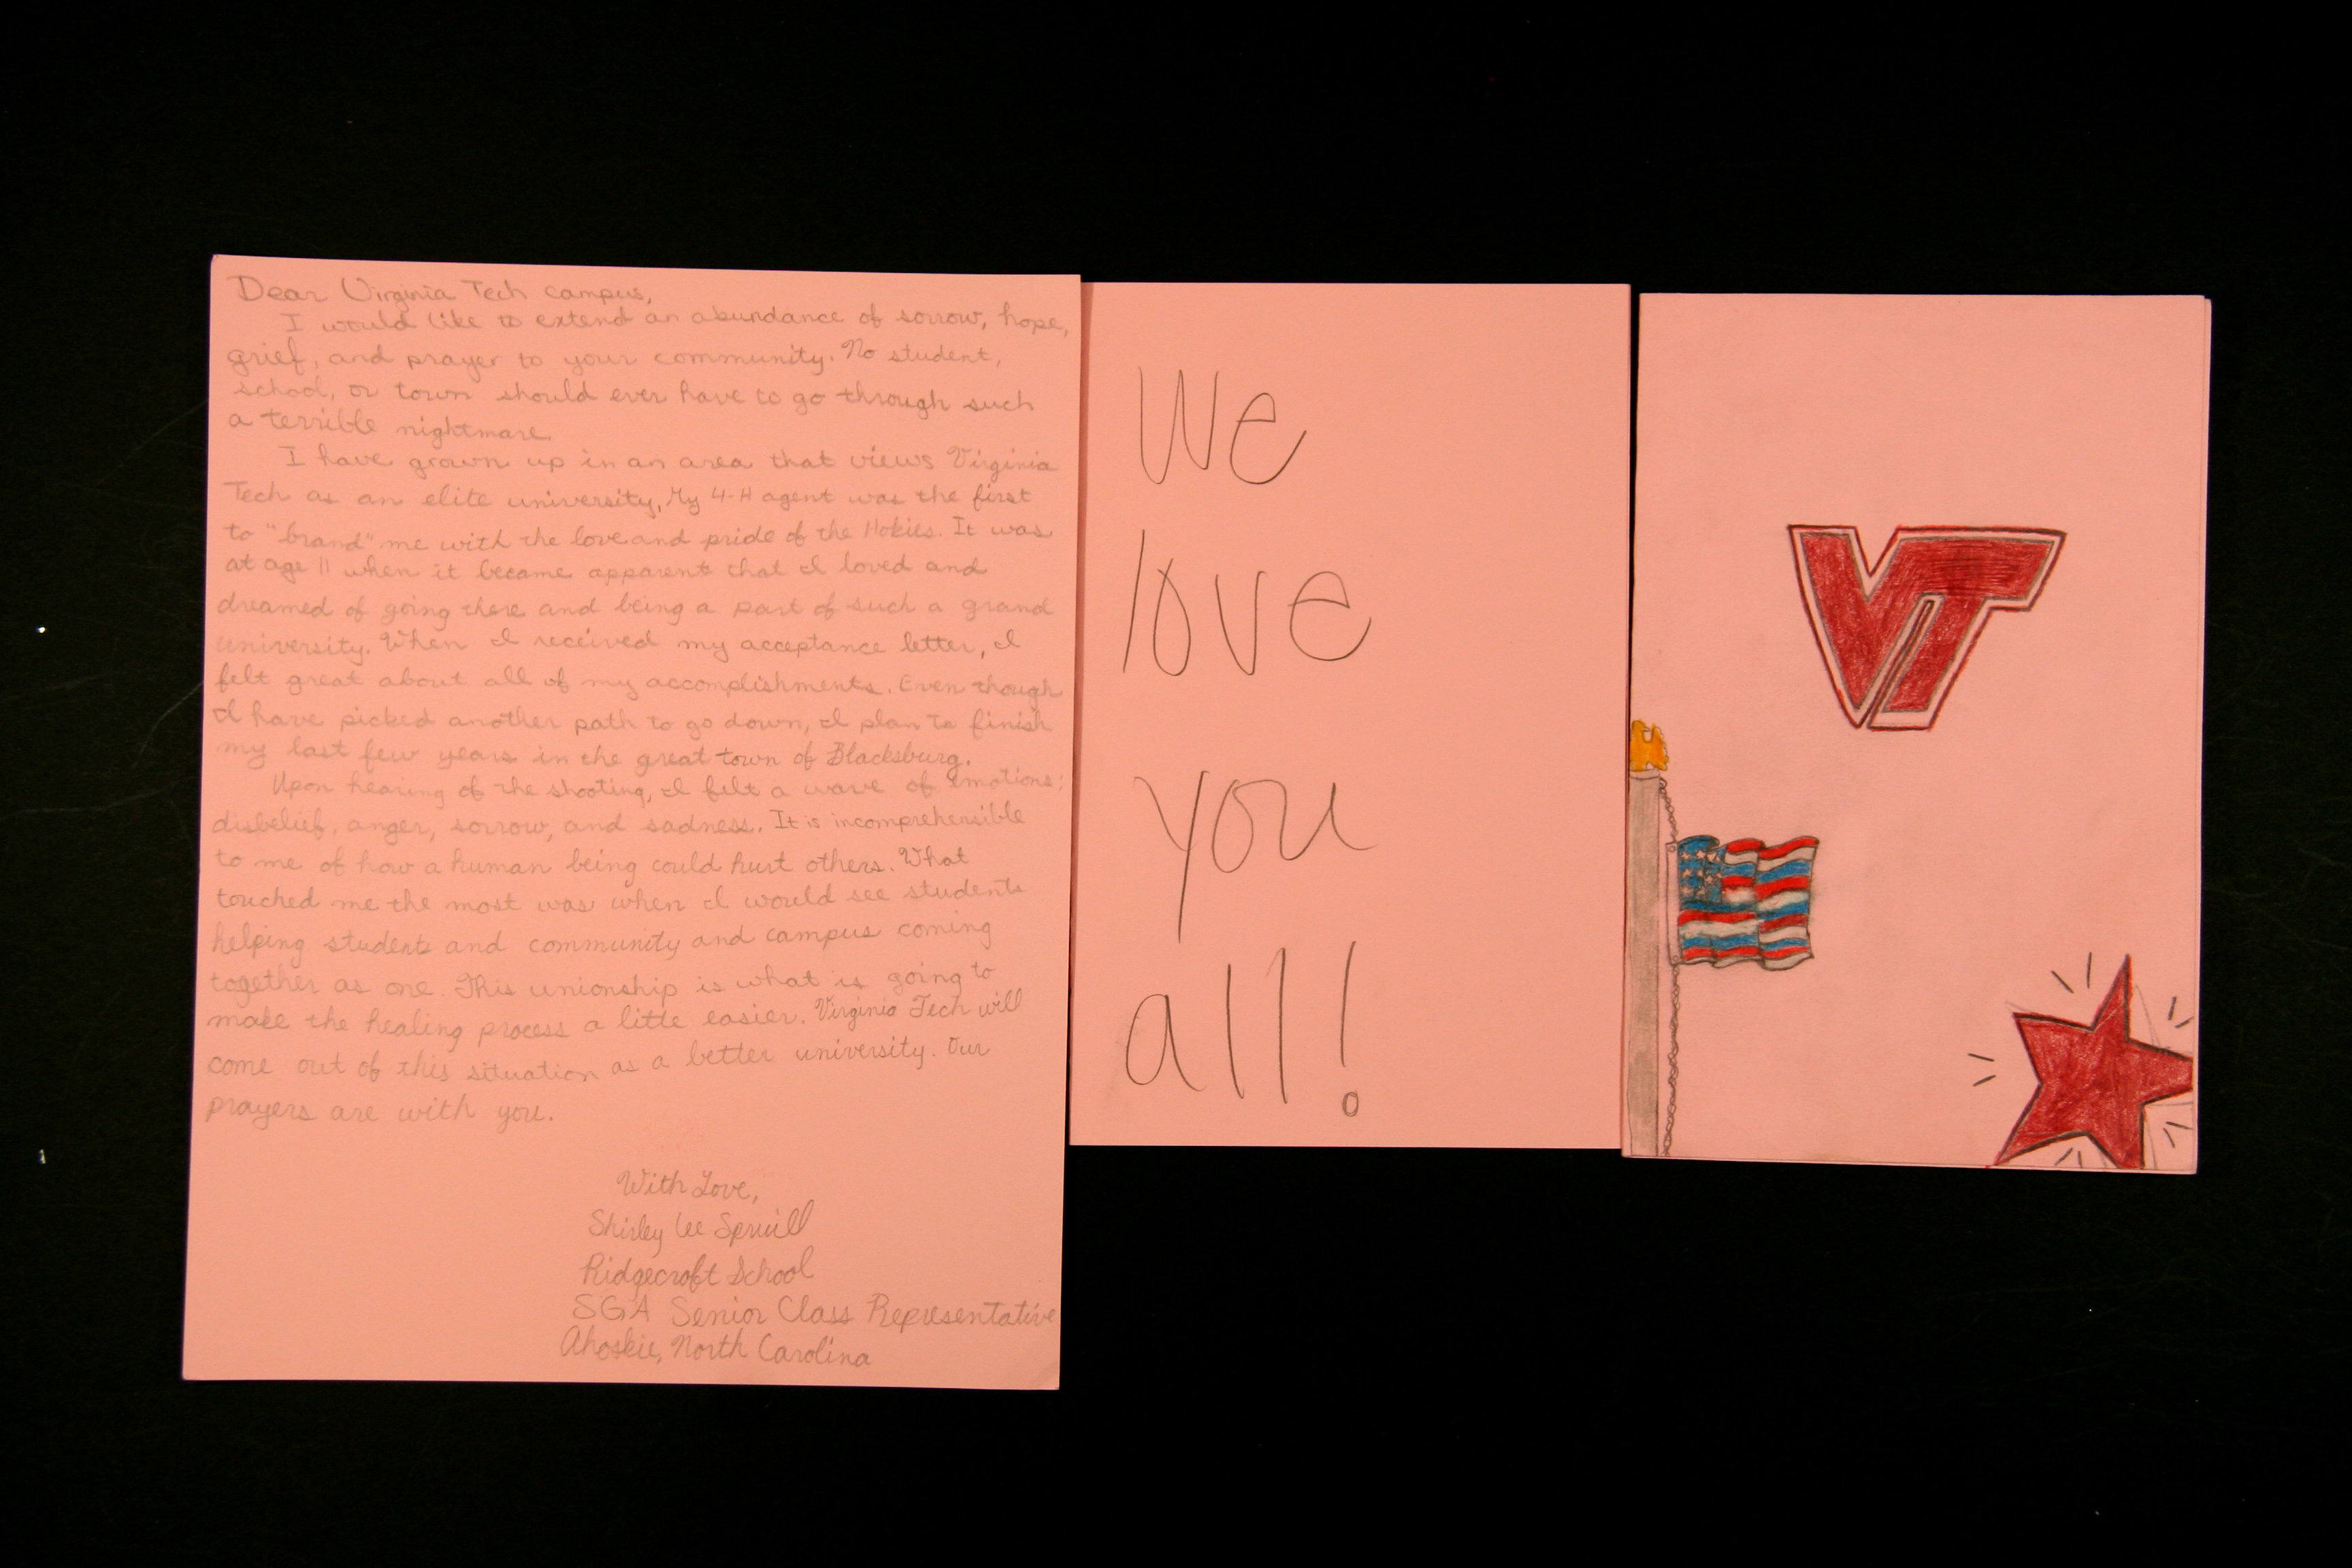 Dear Virginia Tech campus,
I would like to extend an abundance of sorrow, hope,
grief, and prayer to your community. No student,
school, or town should ever have to go through such
a terrible nightmare.
I have grown up in an area that views Virginia
Tech as an elite university, My 4-H agent was the first
to "brand" me with the love and pride of the Hokies. It was
at age 11 when it became apparent that I loved and
dreamed of going there and being a part of such a grand
university. When I received my acceptance letter, I
felt great about all of my accomplishments. Even though
I have picked another path to go down, I plan to finish
my last few years in the great town of Blacksburg.
Upon hearing of the shooting, I felt a wave of emotions;
disbelief, anger, sorrow, and sadness. It is incomprehensible
to me of how a human being could hurt others. What
touched me the most was when I would see students
helping students and community and campus coming
together as one. This unionship is what is going to
make the healing process a little easier. Virginia Tech will
come out of this situation as a better university. Our
prayers are with you.
With Love,
Shirley Lee Spruill
Ridgecroft School
SGA Senior Class Representative
Ahoskie, North Carolina
We
love
you
all!
VT